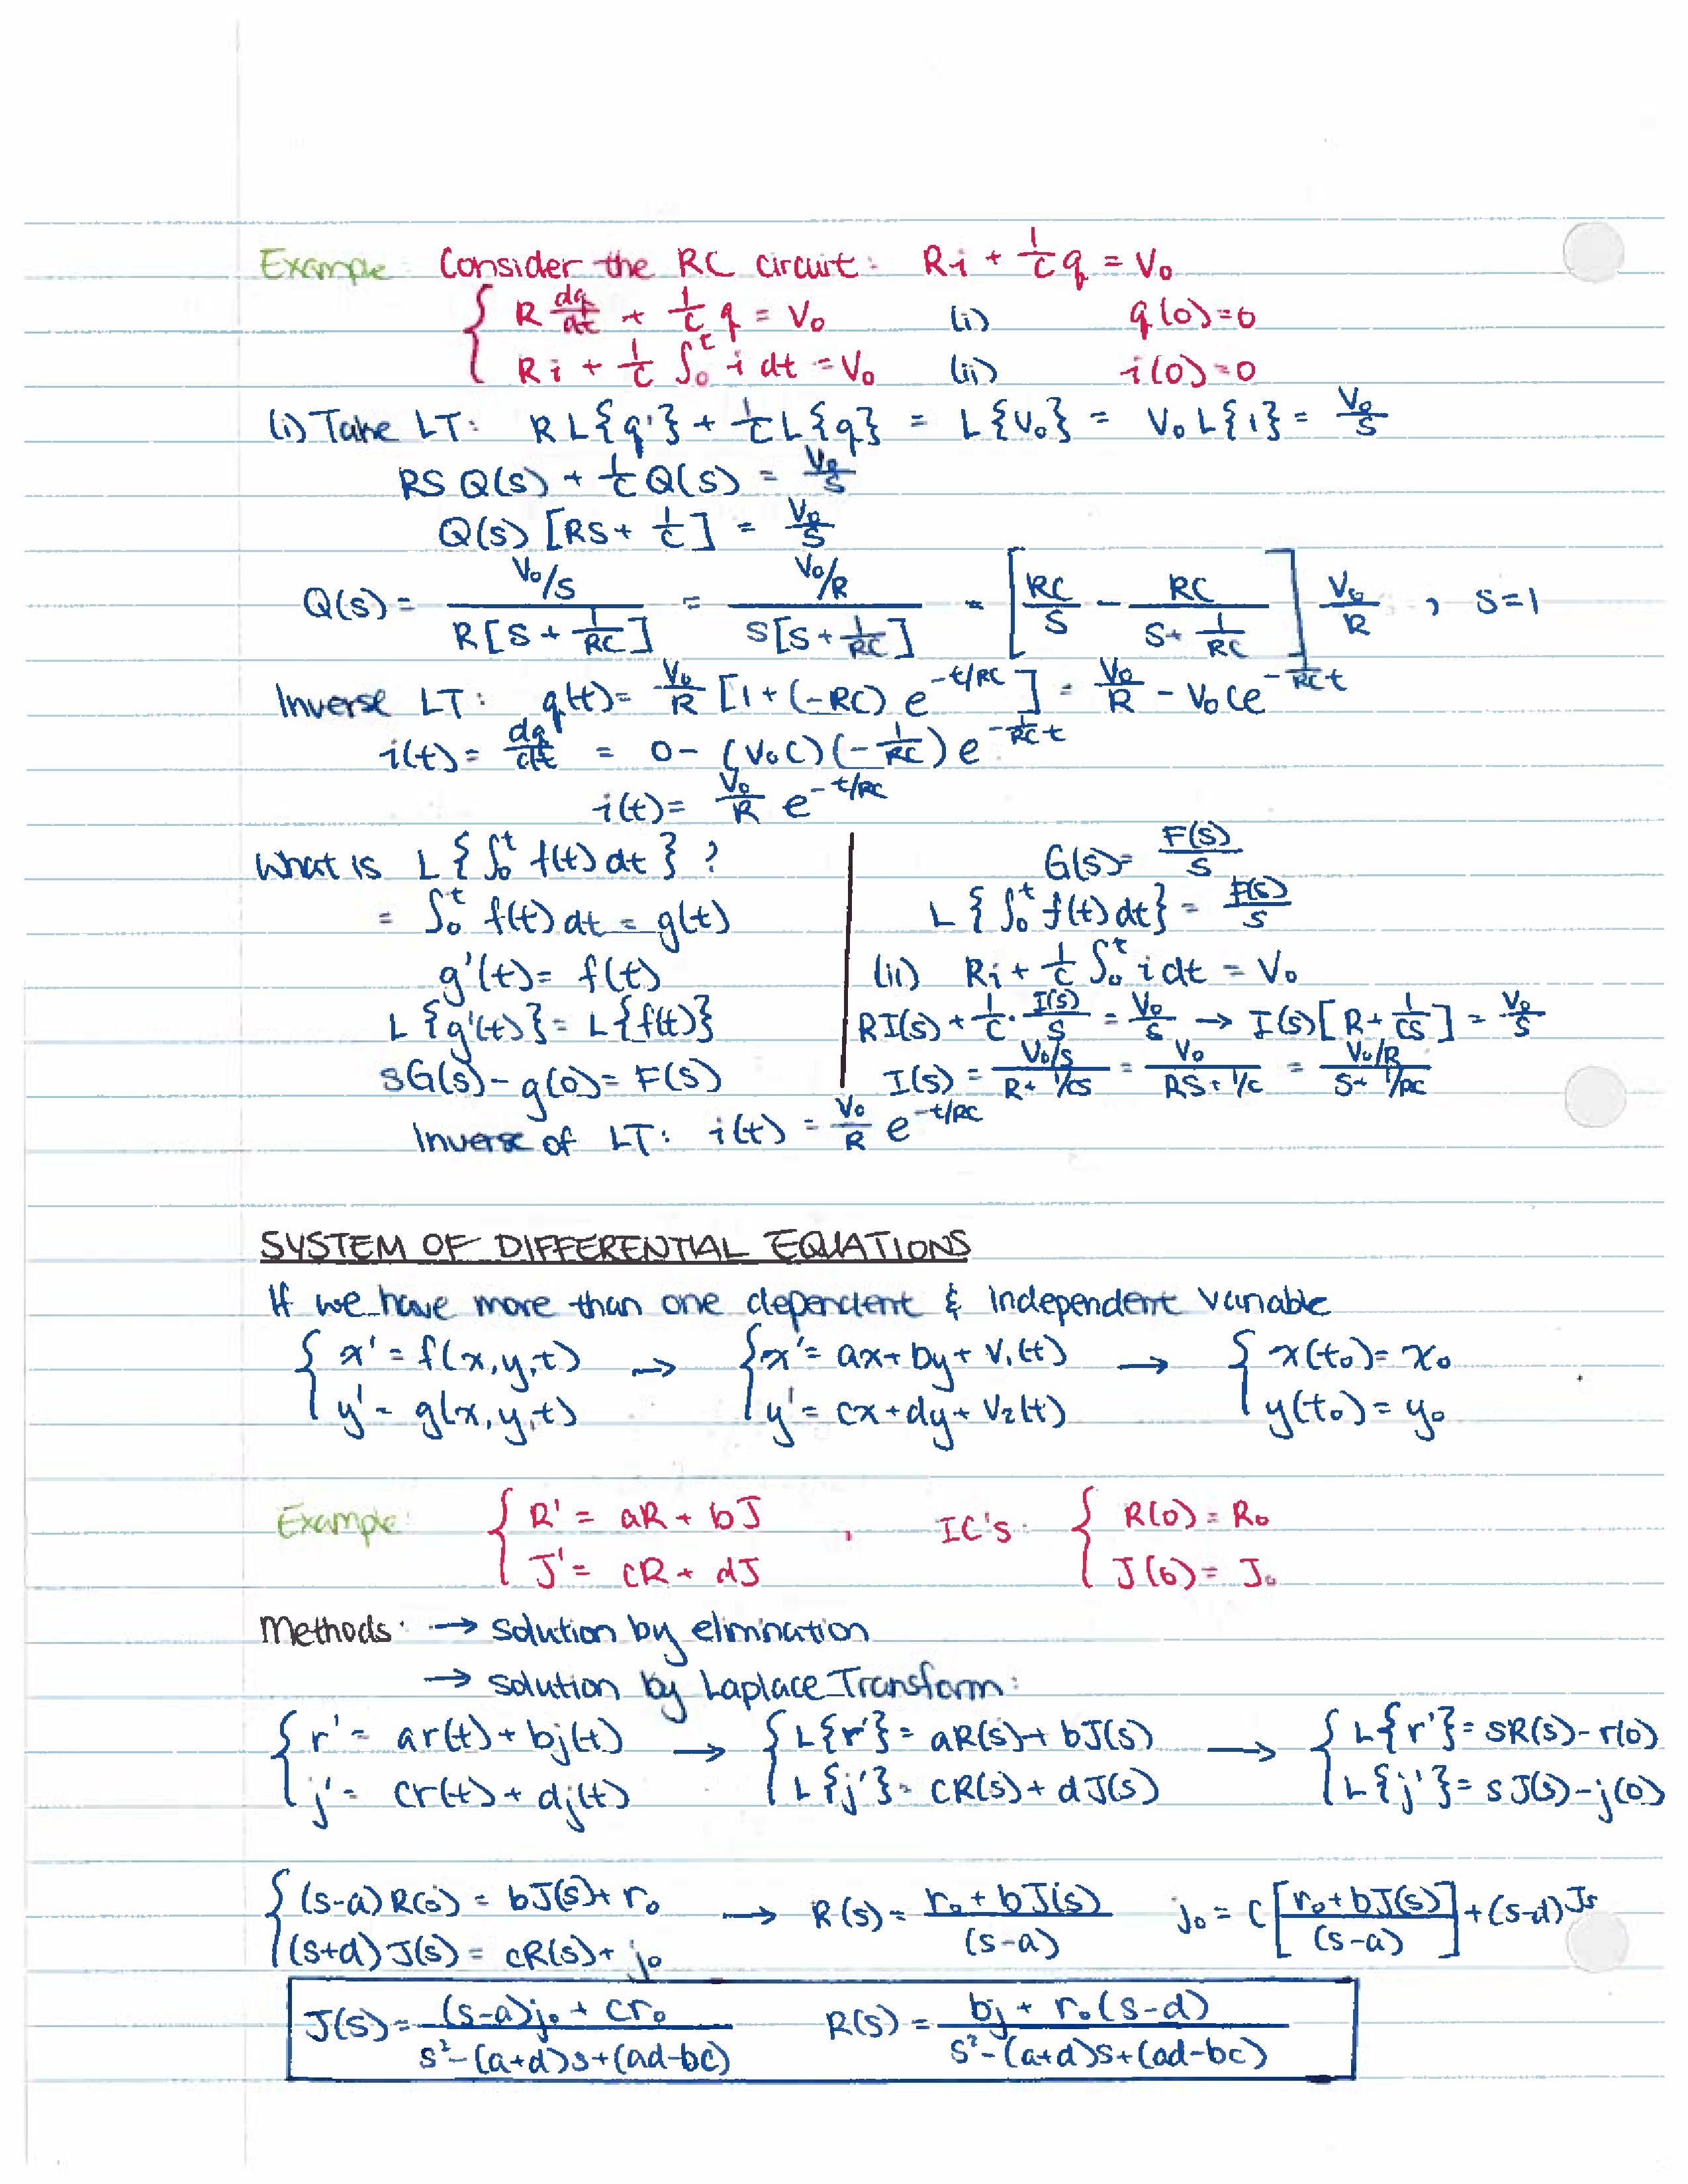 Example Consider the RC circuit: Ri + 1/C q = V₀
{ R dq/dt + 1/C q = V₀ (i) q(0)=0
{ Ri + 1/C ∫₀ᵗ i dt = V₀ (ii) i(0)=0
(i) Take LT: R L{q'} + 1/C L{q} = L{V₀} = V₀ L{1} = V₀/S
RS Q(s) + 1/C Q(s) = V₀/S
Q(s) [RS + 1/C] = V₀/S
Q(s) = (V₀/S)/(R[S + 1/RC]) = (V₀/R)/(S[S + 1/RC]) = [RC/S - RC/(S + 1/RC)] V₀/R , S=1
Inverse LT: q(t) = V₀/R [1 + (-RC) e^(-t/RC)] = V₀/R - V₀Ce^(-1/RC t)
i(t) = dq/dt = 0 - (V₀C)(-1/RC) e^(-1/RC t)
i(t) = V₀/R e^(-t/RC)
What is L{∫₀ᵗ f(t) dt} ?
= ∫₀ᵗ f(t) dt = g(t)
g'(t) = f(t)
L{g'(t)} = L{f(t)}
sG(s) - g(0) = F(s)
G(s) = F(s)/S
L{∫₀ᵗ f(t) dt} = F(s)/S
(ii) Ri + 1/C ∫₀ᵗ i dt = V₀
RI(s) + 1/C · I(s)/S = V₀/S → I(s)[R + 1/CS] = V₀/S
I(s) = (V₀/S)/(R + 1/CS) = V₀/(RS + 1/C) = (V₀/R)/(S + 1/RC)
Inverse of LT: i(t) = V₀/R e^(-t/RC)
SYSTEM OF DIFFERENTIAL EQUATIONS
If we have more than one dependent & independent variable
{ x' = f(x,y,t) → { x' = ax + by + V₁(t) → { x(t₀) = x₀
{ y' = g(x,y,t) { y' = cx + dy + V₂(t) { y(t₀) = y₀
Example: { R' = aR + bJ , IC's: { R(0) = R₀
{ J' = cR + dJ { J(0) = J₀
Methods: → solution by elimination
→ solution by Laplace Transform:
{ r' = ar(t) + bj(t) → { L{r'} = aR(s) + bJ(s) → { L{r'} = sR(s) - r(0)
{ j' = cr(t) + dj(t) { L{j'} = cR(s) + dJ(s) { L{j'} = sJ(s) - j(0)
{ (s-a)R(s) = bJ(s) + r₀ → R(s) = (r₀ + bJ(s))/(s-a) j₀ = C[(r₀ + bJ(s))/(s-a)] + (s-d)Js
{ (s+d)J(s) = cR(s) + j₀
J(s) = ((s-a)j₀ + cr₀)/(s² - (a+d)s + (ad-bc)) R(s) = (bj + r₀(s-d))/(s² - (a+d)s + (ad-bc))